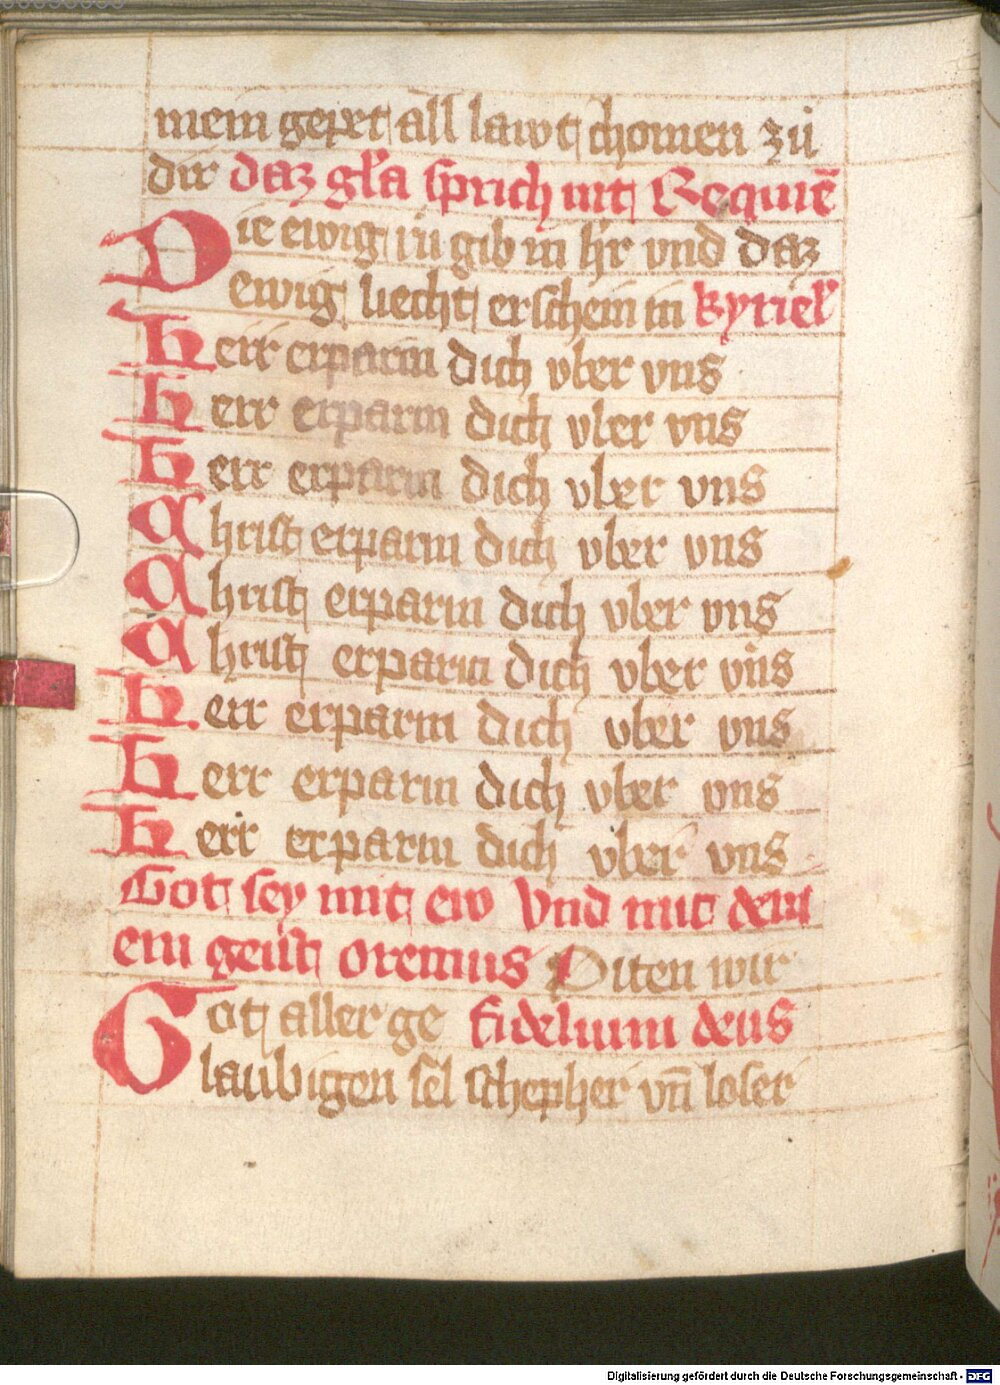 mein gepet all lawt chomen zů
dir daz gl̃a sprich nit Requiē
Die ewig rů gib in hr̃ vnd daz
ewig liecht erschein in kyriel̃
Herr erparm dich vber vns
Herr erparm dich vber vns
Herr erparm dich vber vns
Christ erparm dich vber vns
Christ erparm dich vber vns
Christ erparm dich vber vns
Herr erparm dich vber vns
Herr erparm dich vber vns
Herr erparm dich vber vns
Got sey mit ew Vnd mit dem
em geist oremus Piten wir
Got aller ge fidelium deus
laubigen sel schepher vn̄ loser
Digitalisierung gefördert durch die Deutsche Forschungsgemeinschaft - DFG